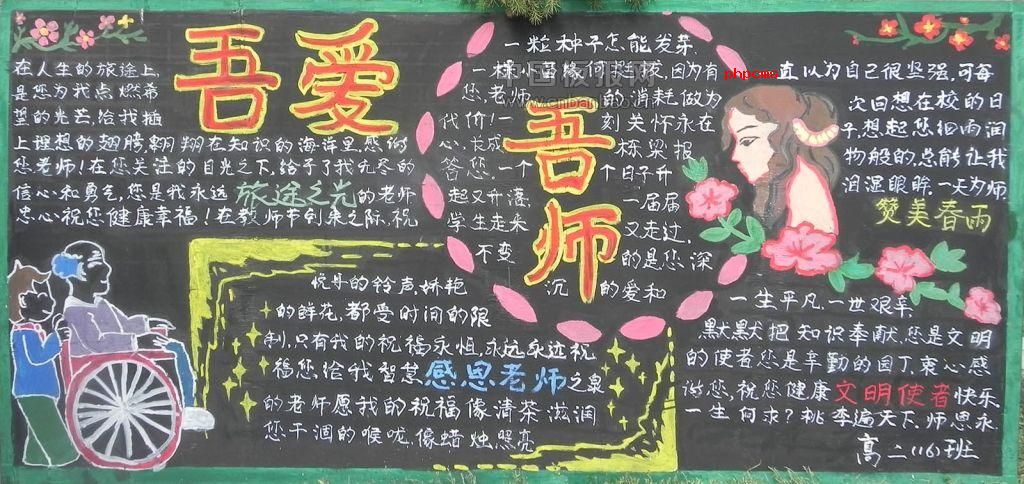 吾爱
吾师
在人生的旅途上,
是您为我点燃希
望的光芒,给我插
上理想的翅膀,翱翔在知识的海洋里,感谢
您老师!在您关注的目光之下,给予了我无尽的
信心和勇气,您是我永远旅途之光的老师
衷心祝您健康幸福!在教师节到来之际,祝
一粒种子怎能发芽,
一棵小苗
因为有
您,老师
的消耗做为
代价!一
刻关怀永在
心,
栋梁报
答您,一个
个日子升
起又升落,
一届届
学生走来
又走过,
不变
的是您深
沉
的爱和
直以为自己很坚强,可每
次回想在校的日
子,想起您
润
物般的,总能让我
泪湿眼眸,一天为师
赞美春雨
悦耳的铃声,娇艳
的鲜花,都受时间的限
制,只有我的祝福永恒,永远永远祝
福您给我智慧感恩老师之泉
的老师愿我的祝福像清茶滋润
您干涸的喉咙,像蜡烛照亮
一生平凡,一世艰辛
默默把知识奉献,您是文明
的使者您是辛勤的园丁,衷心感
谢您,祝您健康文明使者快乐
一生何求?桃李遍天下,师恩永
高二(16)班
中国板报网
phpcms